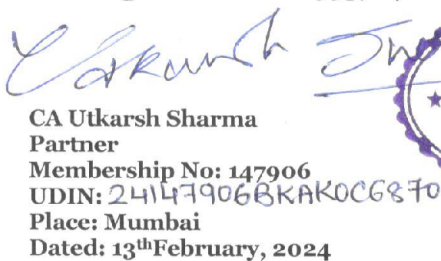 Utkarsh
CA Utkarsh Sharma
Partner
Membership No: 147906
UDIN: 24147906BKAKOC6870
Place: Mumbai
Dated: 13thFebruary, 2024